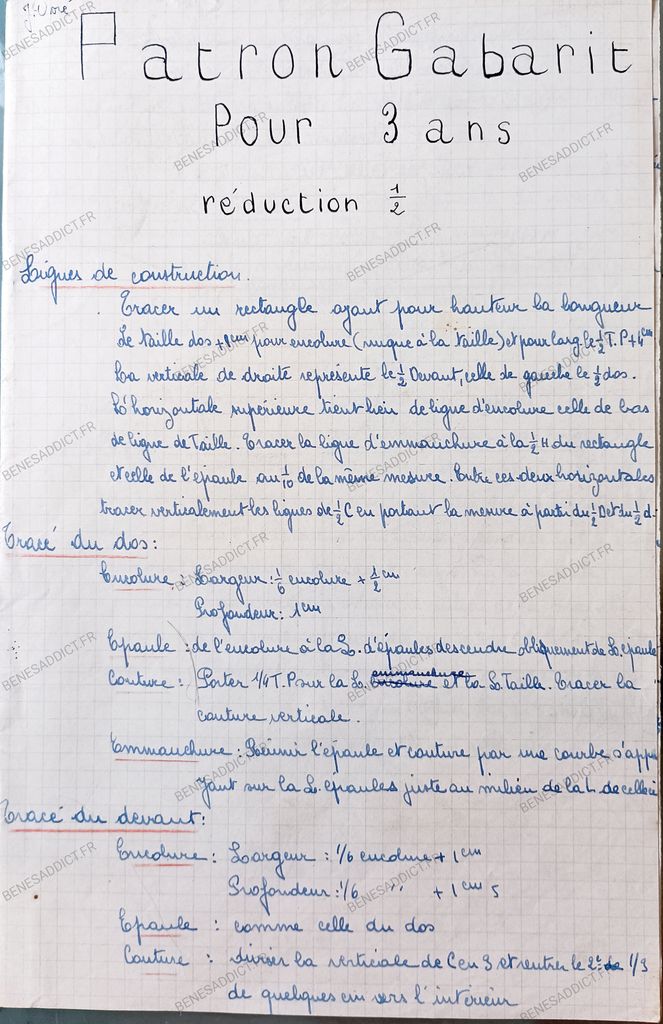 Patron Gabarit
Pour 3 ans
réduction 1/2
Lignes de construction.
Tracer un rectangle ayant pour hauteur la longueur
de taille dos + 1cm pour encolure (nuque à la taille) et pour larg. le 1/2 T.P + 4cm
La verticale de droite représente le 1/2 Devant, celle de gauche le 1/2 dos.
L'horizontale supérieure tient lieu de ligne d'encolure celle de bas
de ligne de Taille. Tracer la ligne d'emmanchure à la 1/2 H du rectangle
et celle de l'épaule au 1/10 de la même mesure. Entre ces deux horizontales
tracer verticalement les lignes de 1/2 C en portant la mesure à partir du 1/2 D et du 1/2 d.
Tracé du dos:
Encolure : Largeur : 1/6 encolure + 1/2 cm
Profondeur : 1cm
Epaule : de l'encolure à la L. d'épaules descendre obliquement de L. épaule
Couture : Porter 1/4 T.P sur la L. emmanchure et la L. Taille. Tracer la
couture verticale.
Emmanchure : Réunir l'épaule et couture par une courbe s'appu
yant sur la L. épaules juste au milieu de la L de celle ci
Tracé du devant:
Encolure : Largeur : 1/6 encolure + 1cm
Profondeur : 1/6 " + 1cm 5
Epaule : comme celle du dos
Couture : diviser la verticale de C en 3 et rentrer le 2e 1/3
de quelques cm vers l'intérieur
BENESADDICT.FR